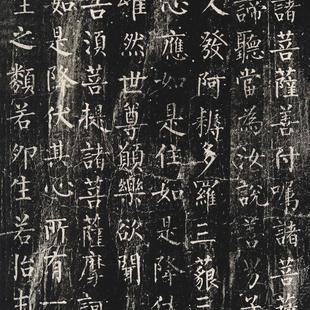 諸菩薩善付囑諸菩薩
諦聽當為汝說善男子
人發阿耨多羅三藐三
心應如是住如是降伏
唯然世尊願樂欲聞
告須菩提諸菩薩摩訶
如是降伏其心所有一
生之類若卵生若胎生